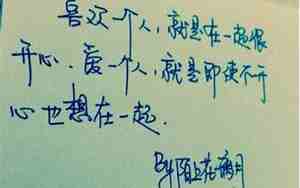 喜欢一个人，就是在一起很
开心．爱一个人，就是即使不开
心也想在一起．
By陌上花满月